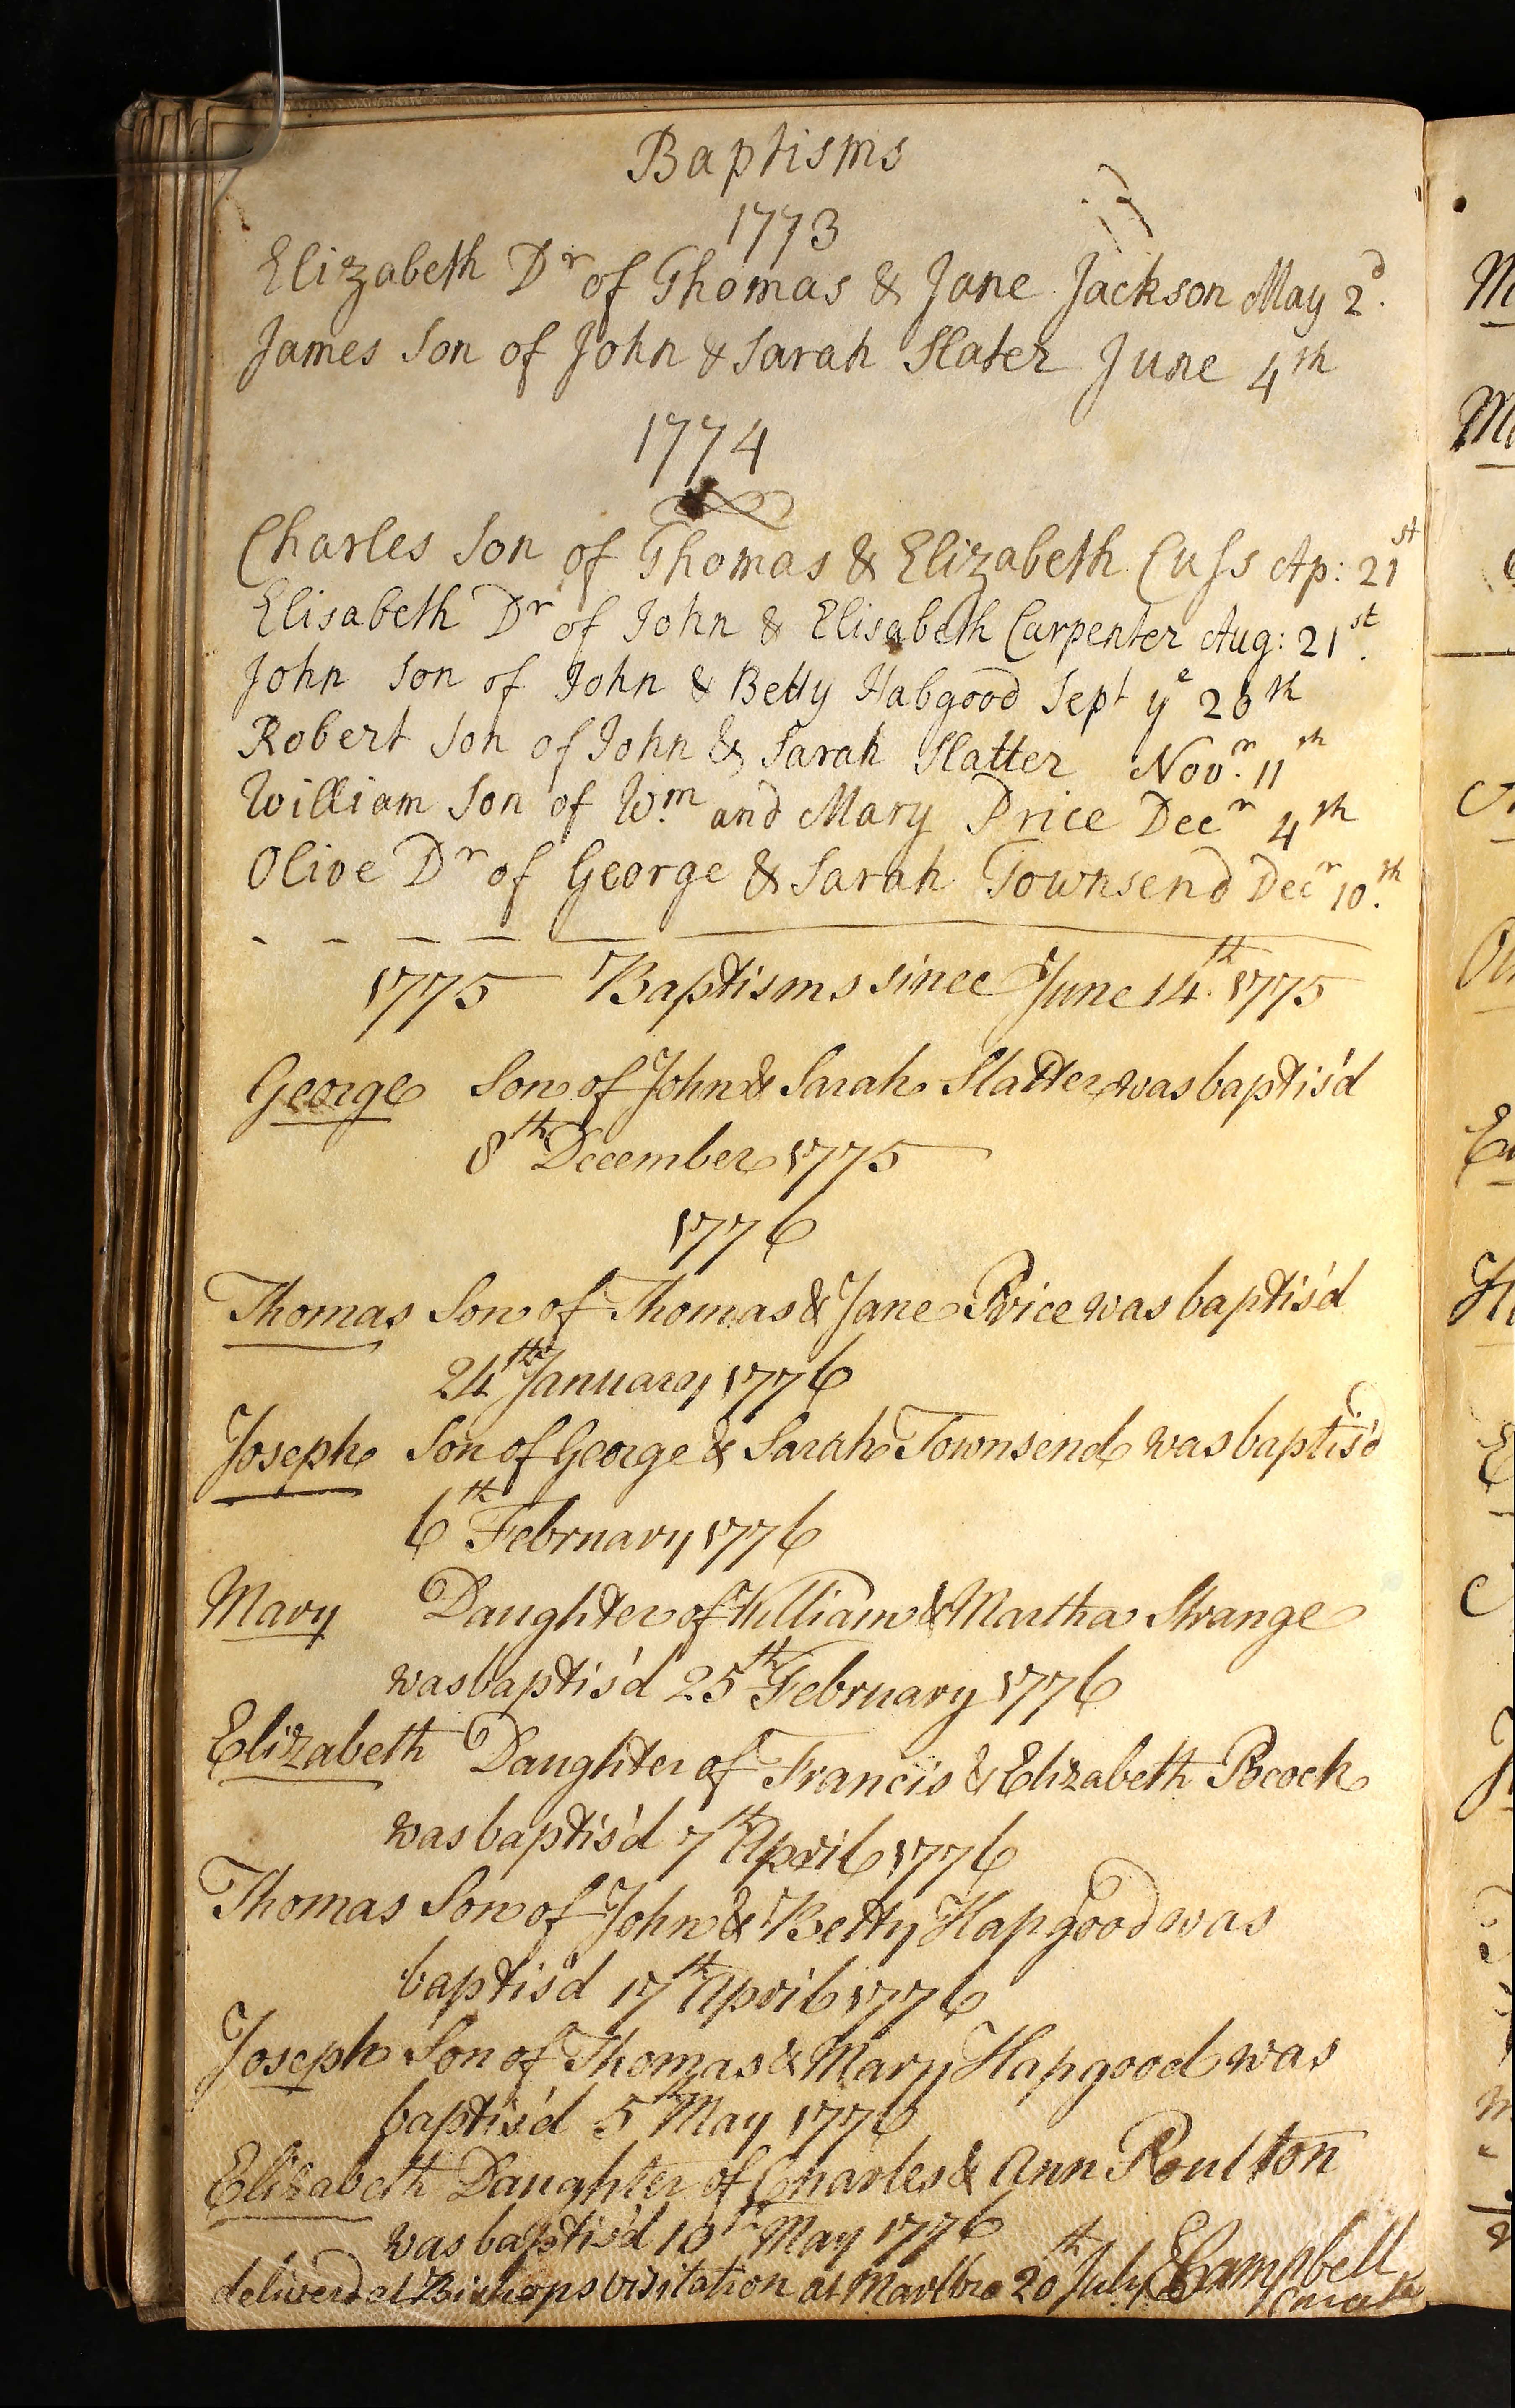 Baptisms
1773
Elizabeth Dr of Thomas & Jane Jackson May 2d.
James Son of John & Sarah Slater June 4th
1774
Charles Son of Thomas & Elizabeth Cuſs Ap: 21st
Elisabeth Dr of John & Elisabeth Carpenter Aug: 21st.
John Son of John & Betty Habgood Sept ye 26th
Robert Son of John & Sarah Slatter Novr. 11th
William Son of Wm. and Mary Price Decr 4th
Olive Dr of George & Sarah Townsend Decr 10.th
1775 Baptisms since June 14th. 1775
George Son of John & Sarah Slatter was baptis'd
8th December 1775
1776
Thomas Son of Thomas & Jane Price was baptis'd
24th January 1776
Joseph Son of George & Sarah Townsend was baptis'd
6th February 1776
Mary Daughter of William & Martha Strange
was baptis'd 25th February 1776
Elizabeth Daughter of Francis & Elizabeth Pocock
was baptis'd 7th April 1776
Thomas Son of John & Betty Hapgood was
baptis'd 17th April 1776
Joseph Son of Thomas & Mary Hapgood was
baptis'd 5th May 1776
Elizabeth Daughter of Charles & Ann Poulton
was baptis'd 10th May 1776
deliverd at Bishops visitation at Marlbro 20th July E Campbell
Curate